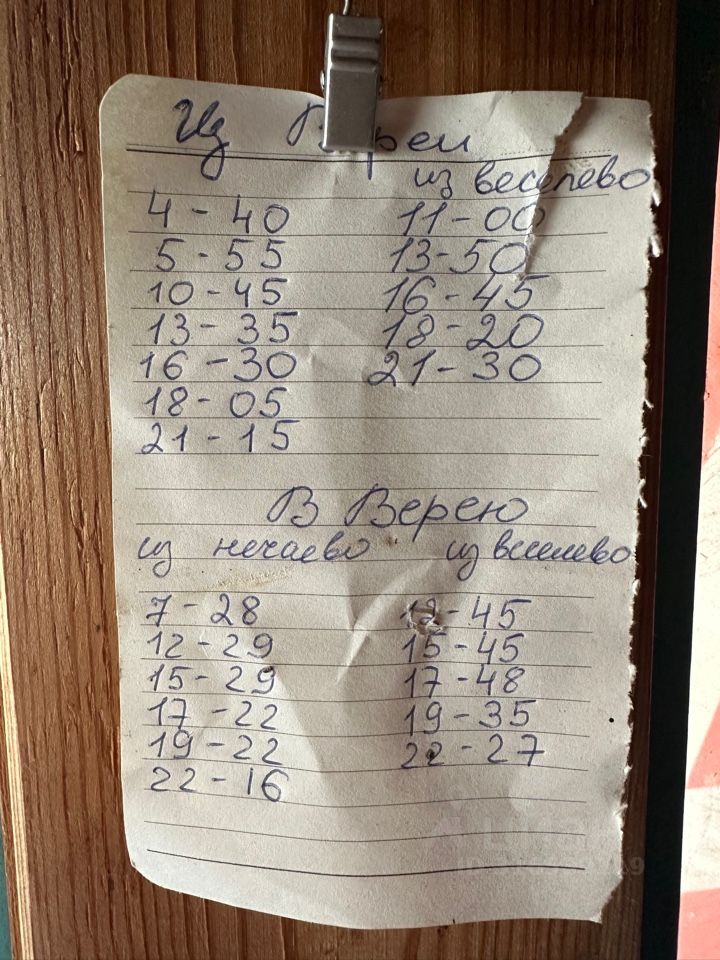 Из Вереи
из веселево
4-40 11-00
5-55 13-50
10-45 16-45
13-35 18-20
16-30 21-30
18-05
21-15
В Верею
из нечаево из веселево
7-28 12-45
12-29 15-45
15-29 17-48
17-22 19-35
19-22 22-27
22-16